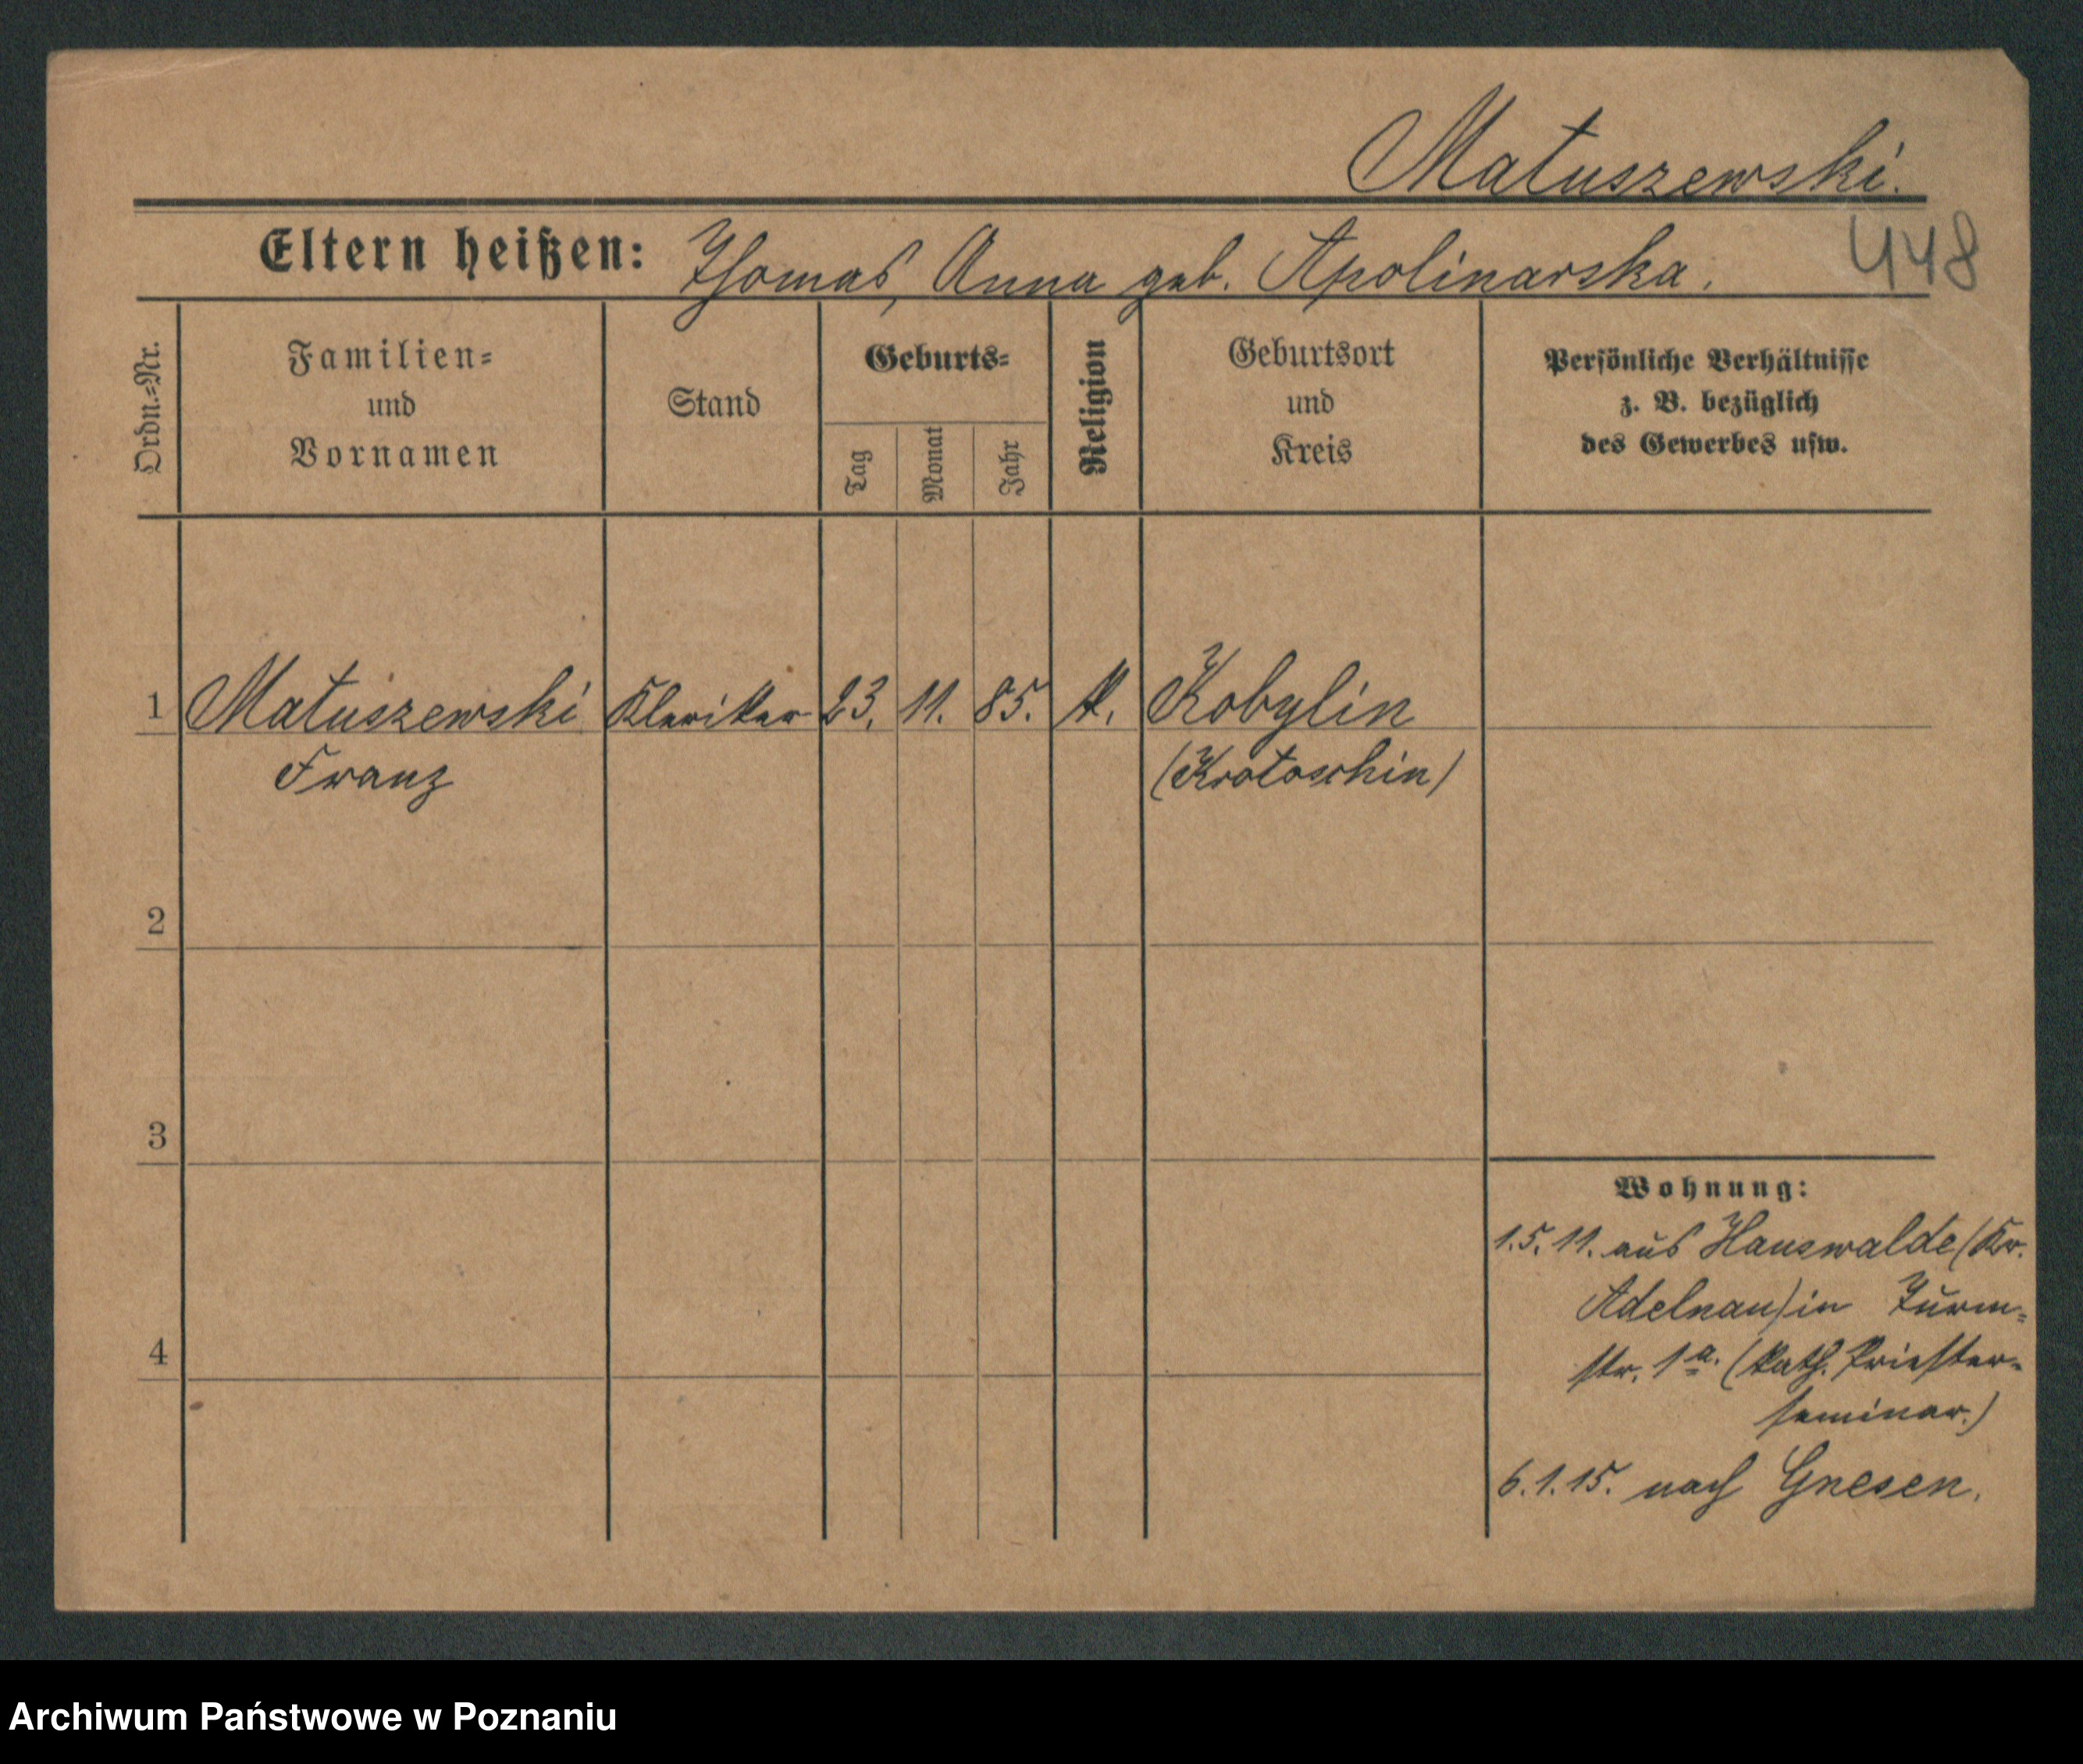 Matuszewski.
Eltern heißen: Thomas, Anna geb. Apolinarska.
448
Ordn.=Nr.
Familien=
und
Vornamen
Stand
Geburts=
Tag
Monat
Jahr
Religion
Geburtsort
und
Kreis
Persönliche Verhältnisse
z. B. bezüglich
des Gewerbes usw.
1 Matuszewski Kleriker 23. 11. 85. k. Kobylin
Franz (Krotoschin)
2
3
4
Wohnung:
1.5.11. aus Hauswalde (Kr.
Adelnau) in Turm=
str. 1a. (kath. Priester=
seminar.)
6.1.15. nach Gnesen.
Archiwum Państwowe w Poznaniu